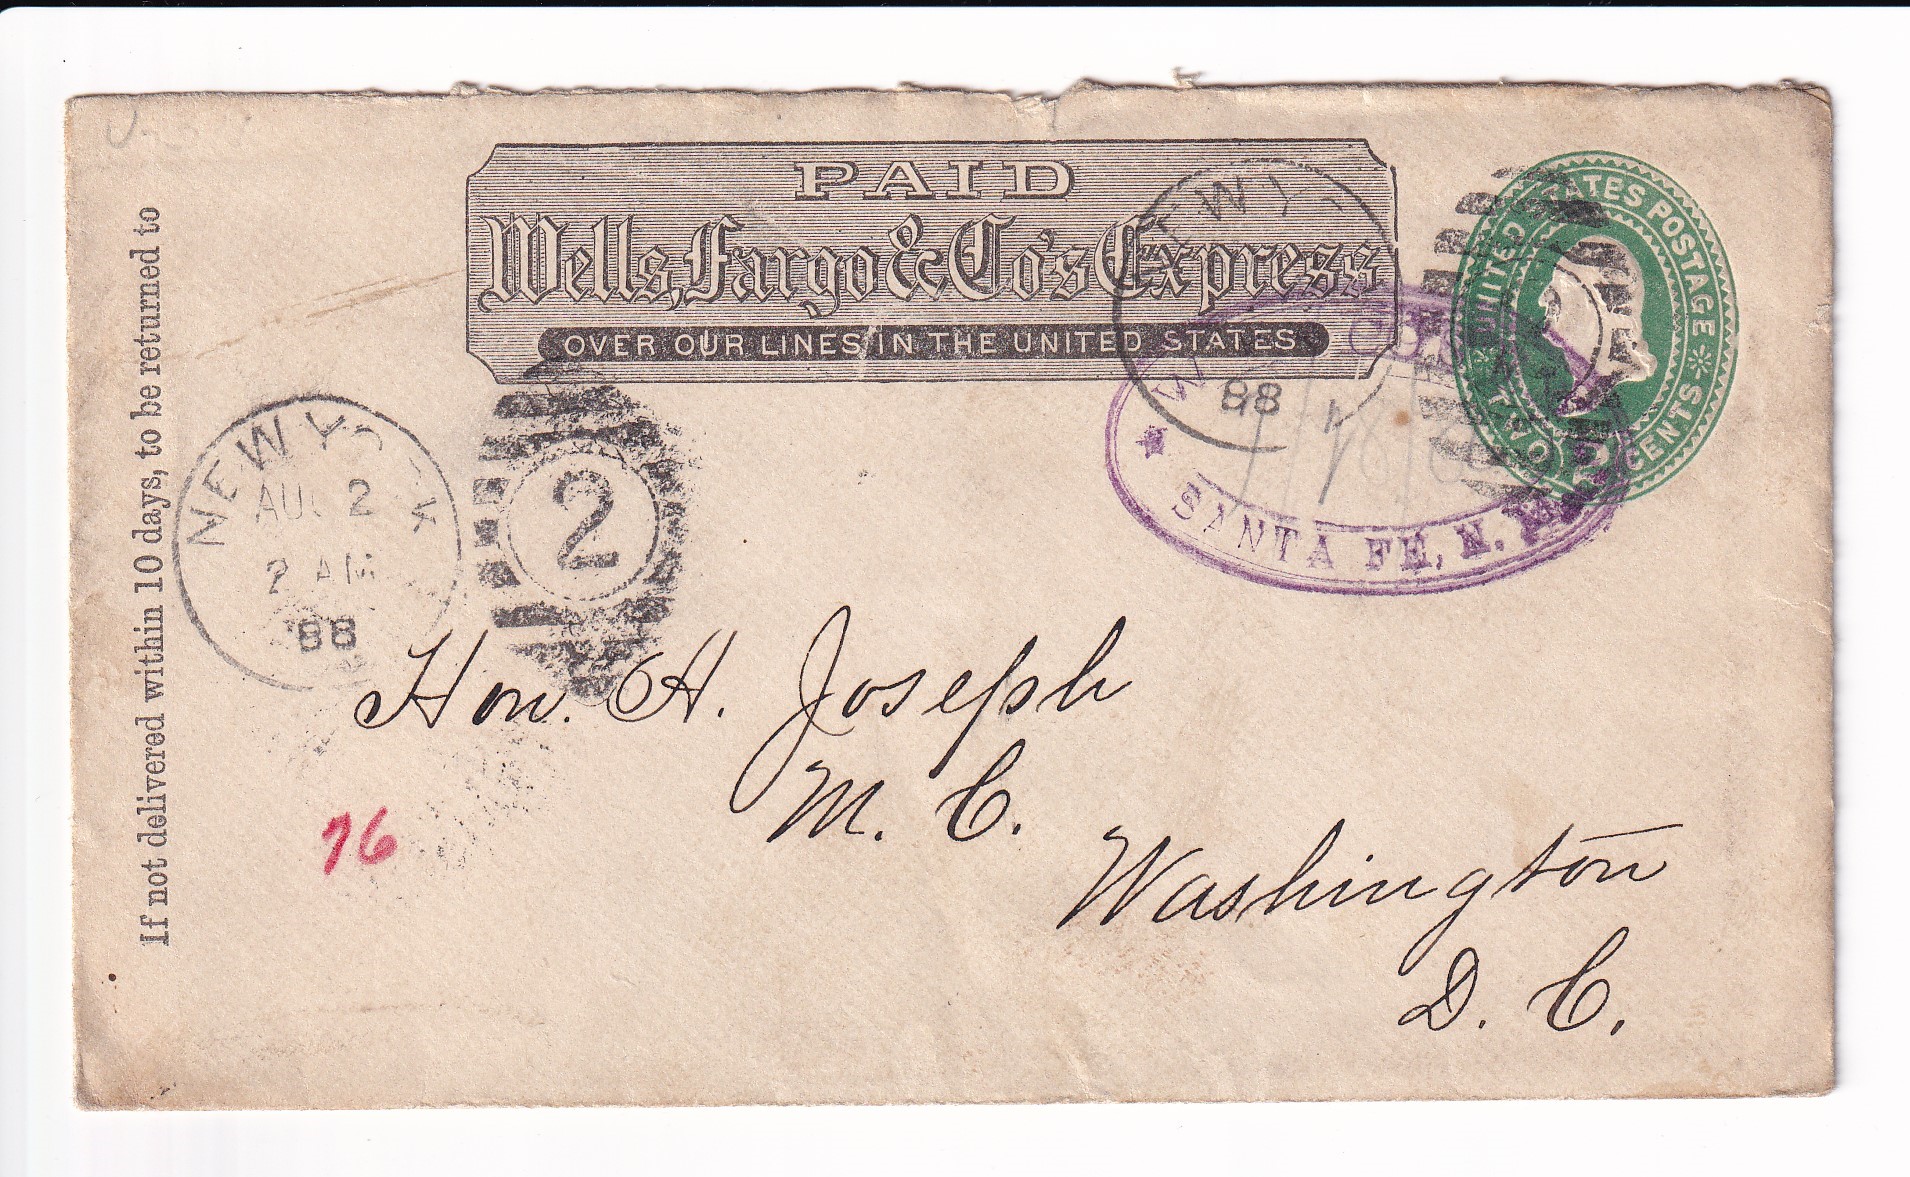 PAID
Wells, Fargo & Co's Express
OVER OUR LINES IN THE UNITED STATES
UNITED STATES POSTAGE
TWO CENTS
NEW Y
88
SANTA FE, N. M.
If not delivered within 10 days, to be returned to
NEW YORK
AUG 2
2 AM
88
2
Hon. A. Joseph
M. C.
Washington
D. C.
76